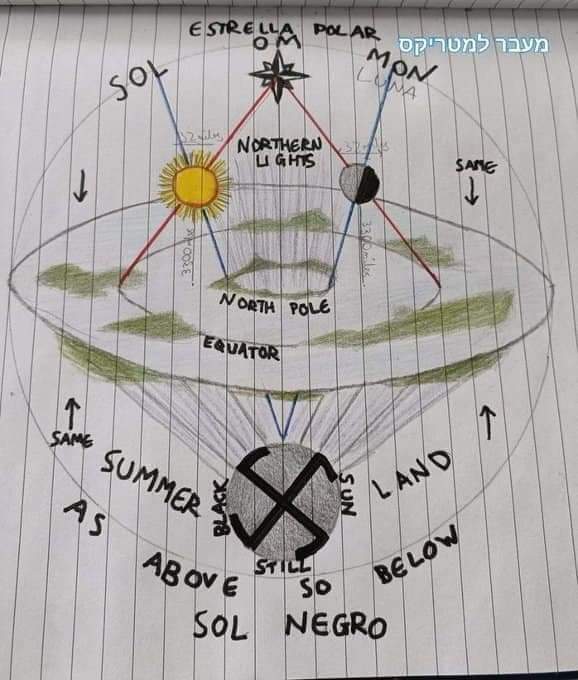 ESTRELLA POLAR
OM
מעבר למטריקס
SOL
MON
LUNA
32 miles
32 miles
NORTHERN
LIGHTS
SAME
3300 miles
3300 miles
NORTH POLE
EQUATOR
SAME
SUMMER LAND
BLACK SUN
STILL
AS ABOVE SO BELOW
SOL NEGRO